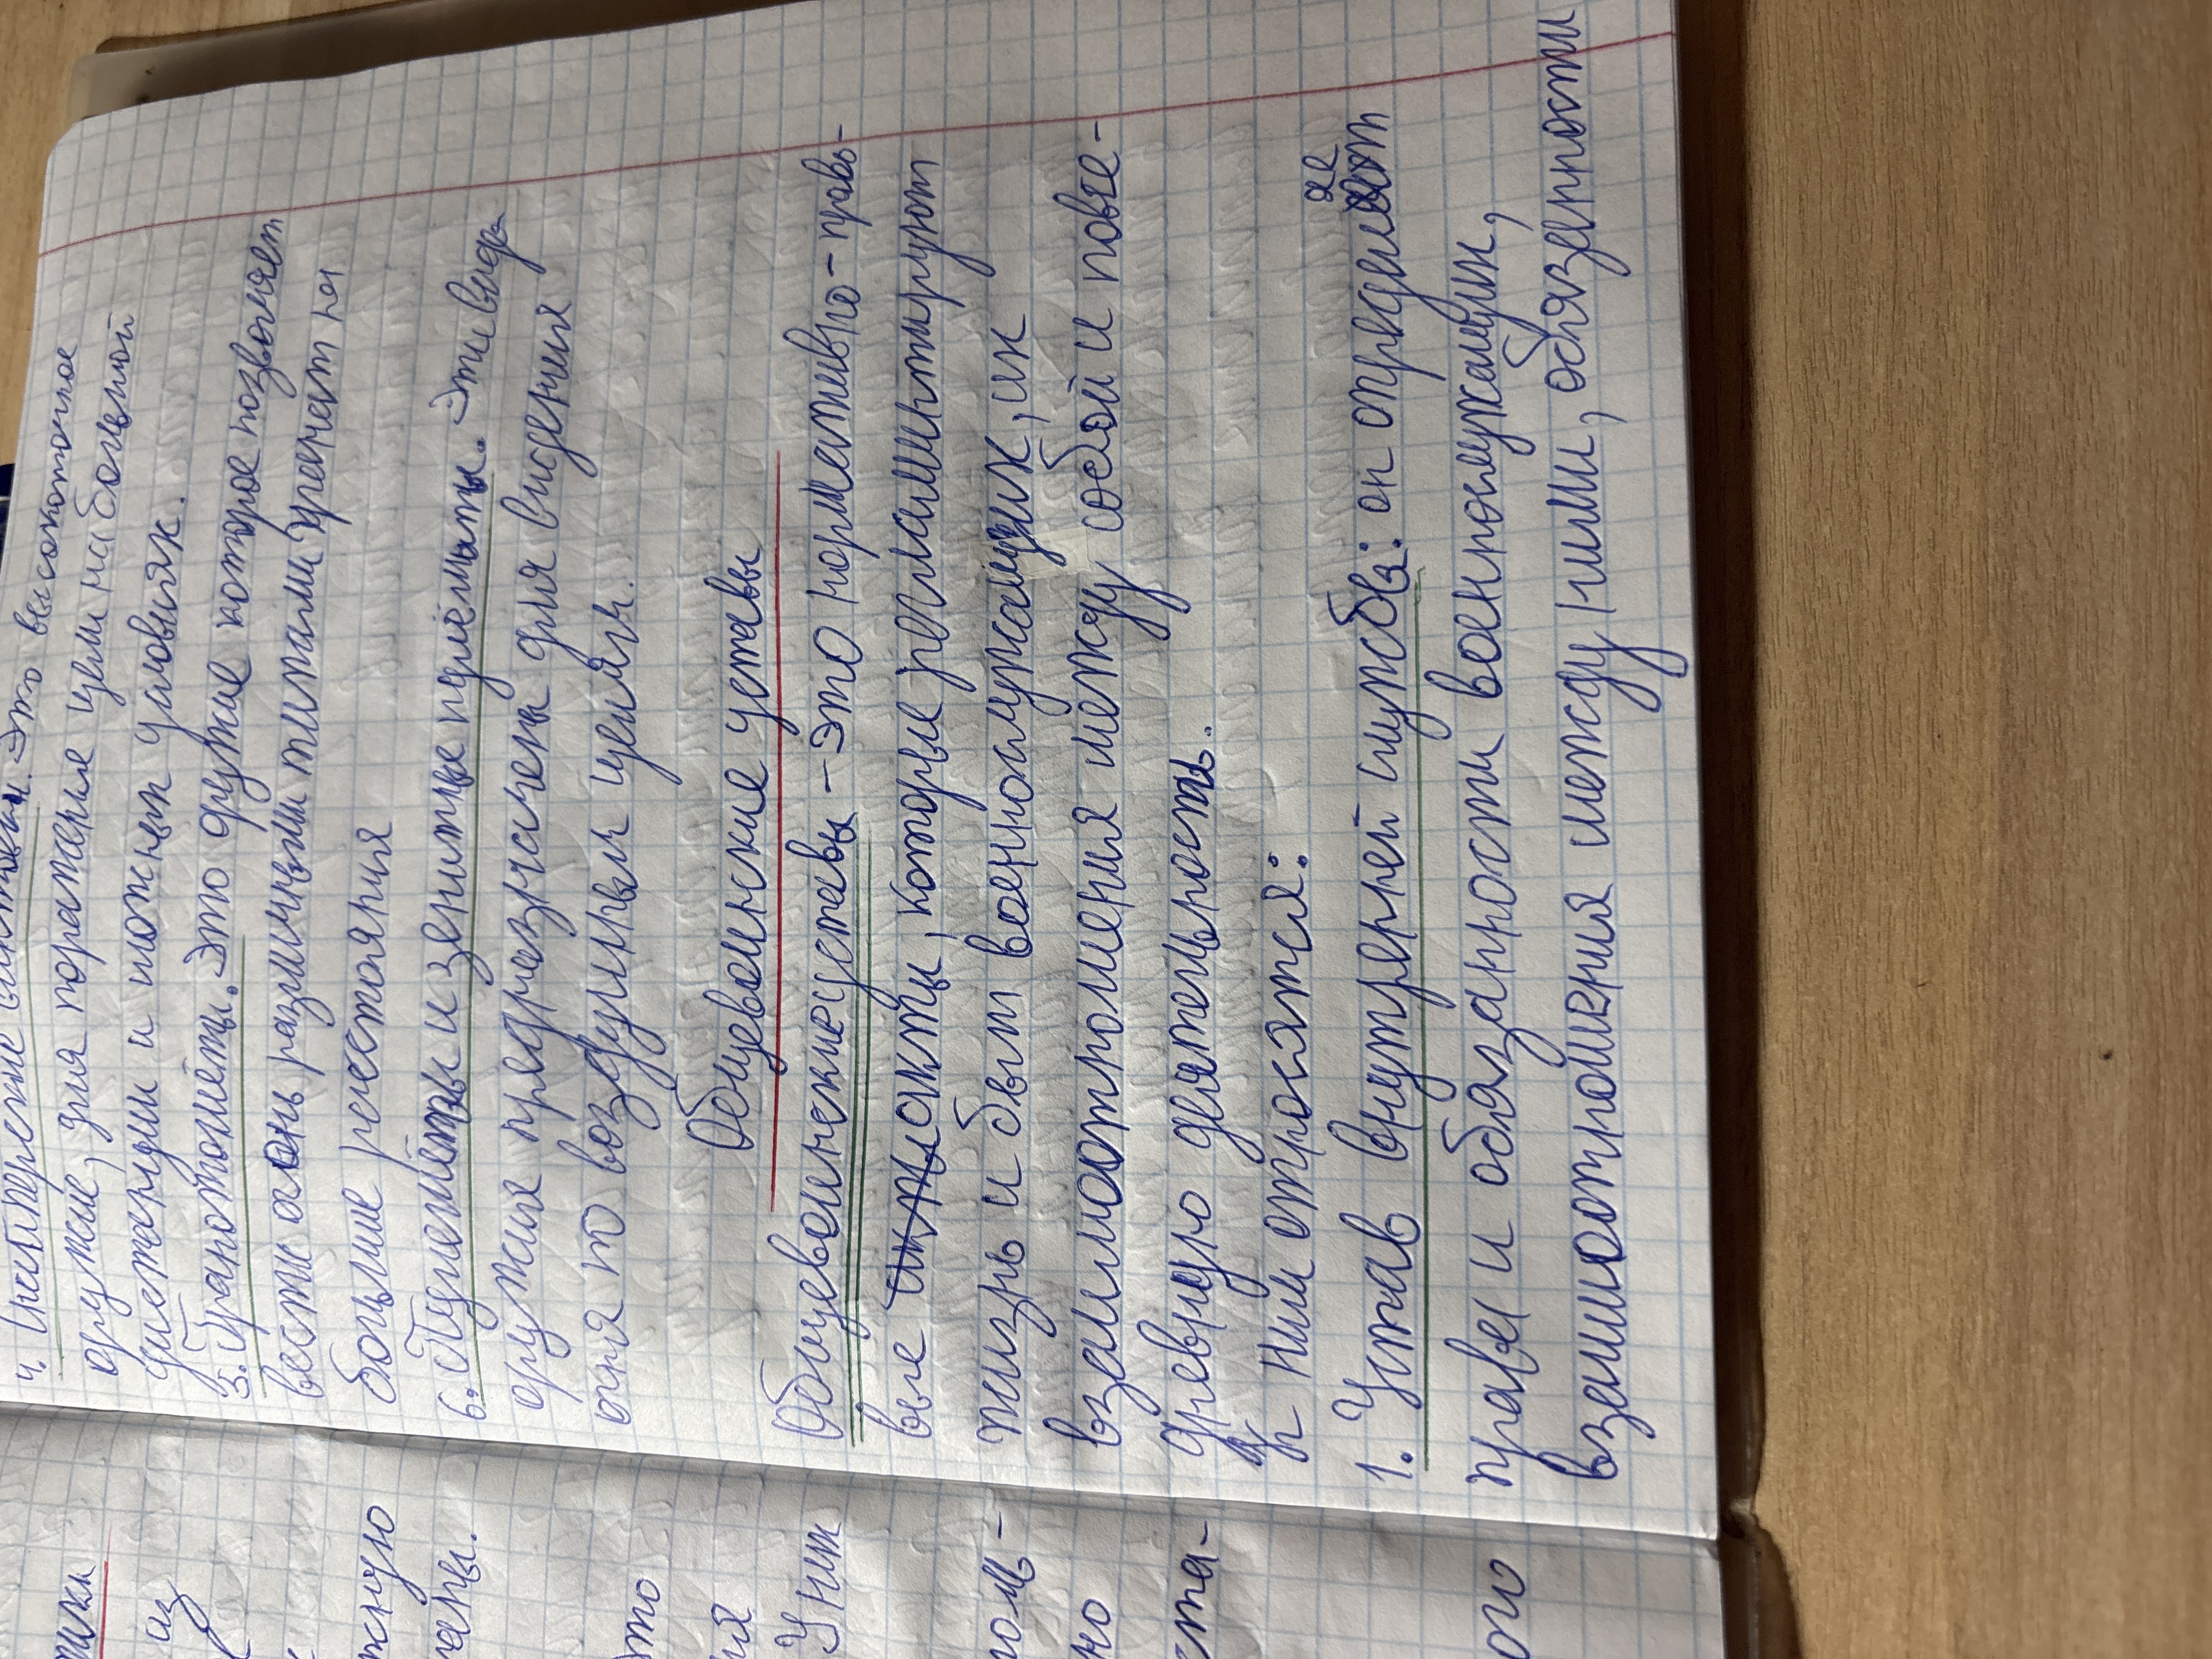 4. Снайперские винтовки. Это высокоточное
оружие, для поражения цели на большой
дистанции и сложных условиях.
5. Гранотомёты. Это оружие которое позволяет
вести огонь различными типами гранат на
большие расстояния
6. Пулемёты и зенитные пулемёты. Эти виды
оружия предназначены для введения
огня по воздушным целям.
Общевоинские уставы
Общевоинские уставы - это нормативно-право-
вые акты, которые регламинтируют
жизнь и быт военнослужащих, их
взаимоотношения между собой и повсе-
древную деятельность.
К ним относятся:
1. Устав внутреней службы: он определяет
права и обязанности военнослужащих,
взаимоотношения между ними, обязанности
тики
из
жную
чены.
это
ия
У них
но
ста-
ого